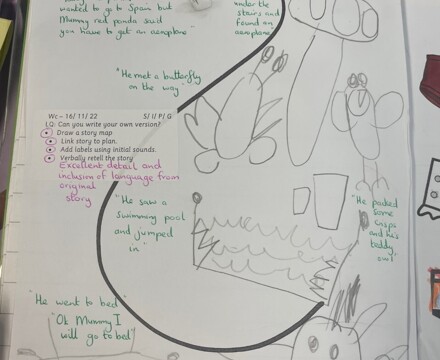 wanted to go to Spain but
Mummy red panda said
you have to get an aeroplane"
under the
stairs and
found an
aeroplane
"He met a butterfly
on the way
Wc – 16/ 11/ 22 S/ I/ P/ G
LO: Can you write your own version?
Draw a story map
Link story to plan.
Add labels using initial sounds.
Verbally retell the story
Excellent detail and
inclusion of language from
original
story
"He saw a
swimming pool
and jumped
in"
"He packed
some
crisps
and his
teddy
"He went to bed
"Ok Mummy I
will go to bed"